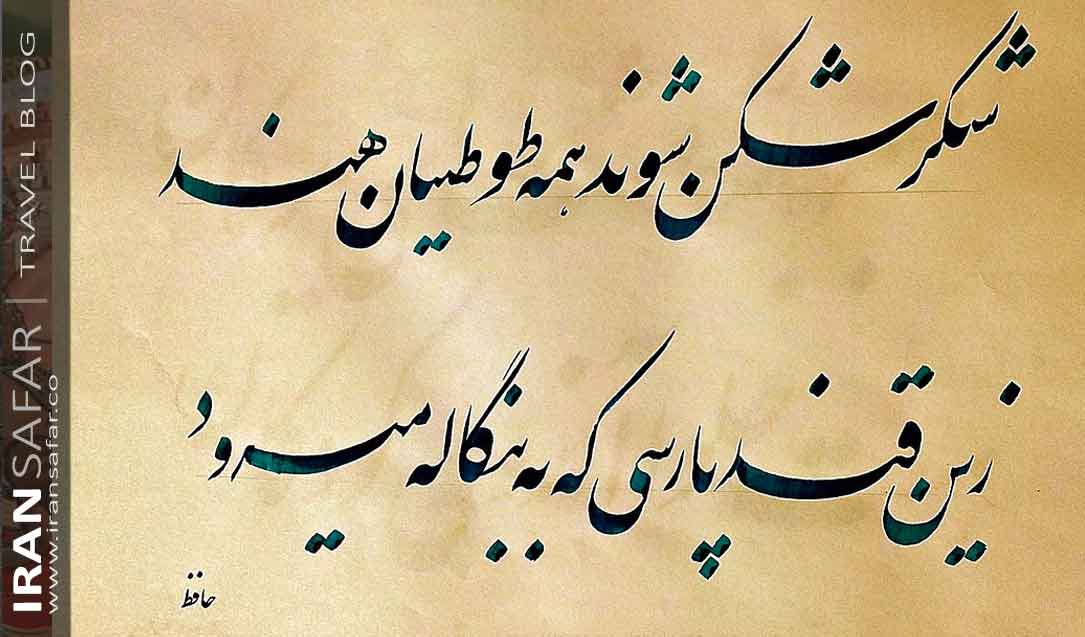 شکر شکن شوند همه طوطیان هند
زین قند پارسی که به بنگاله میرود
حافظ
IRANSAFAR | TRAVEL BLOG
www.iransafar.co